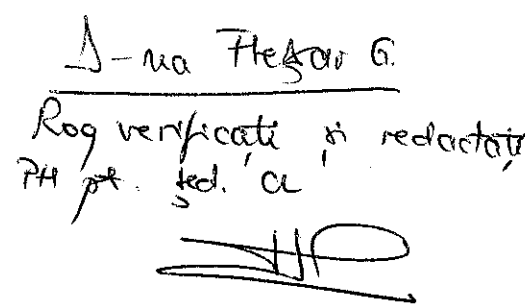 D-na Fleșar G.
Rog verificați și redactați
PH pt. șed. a